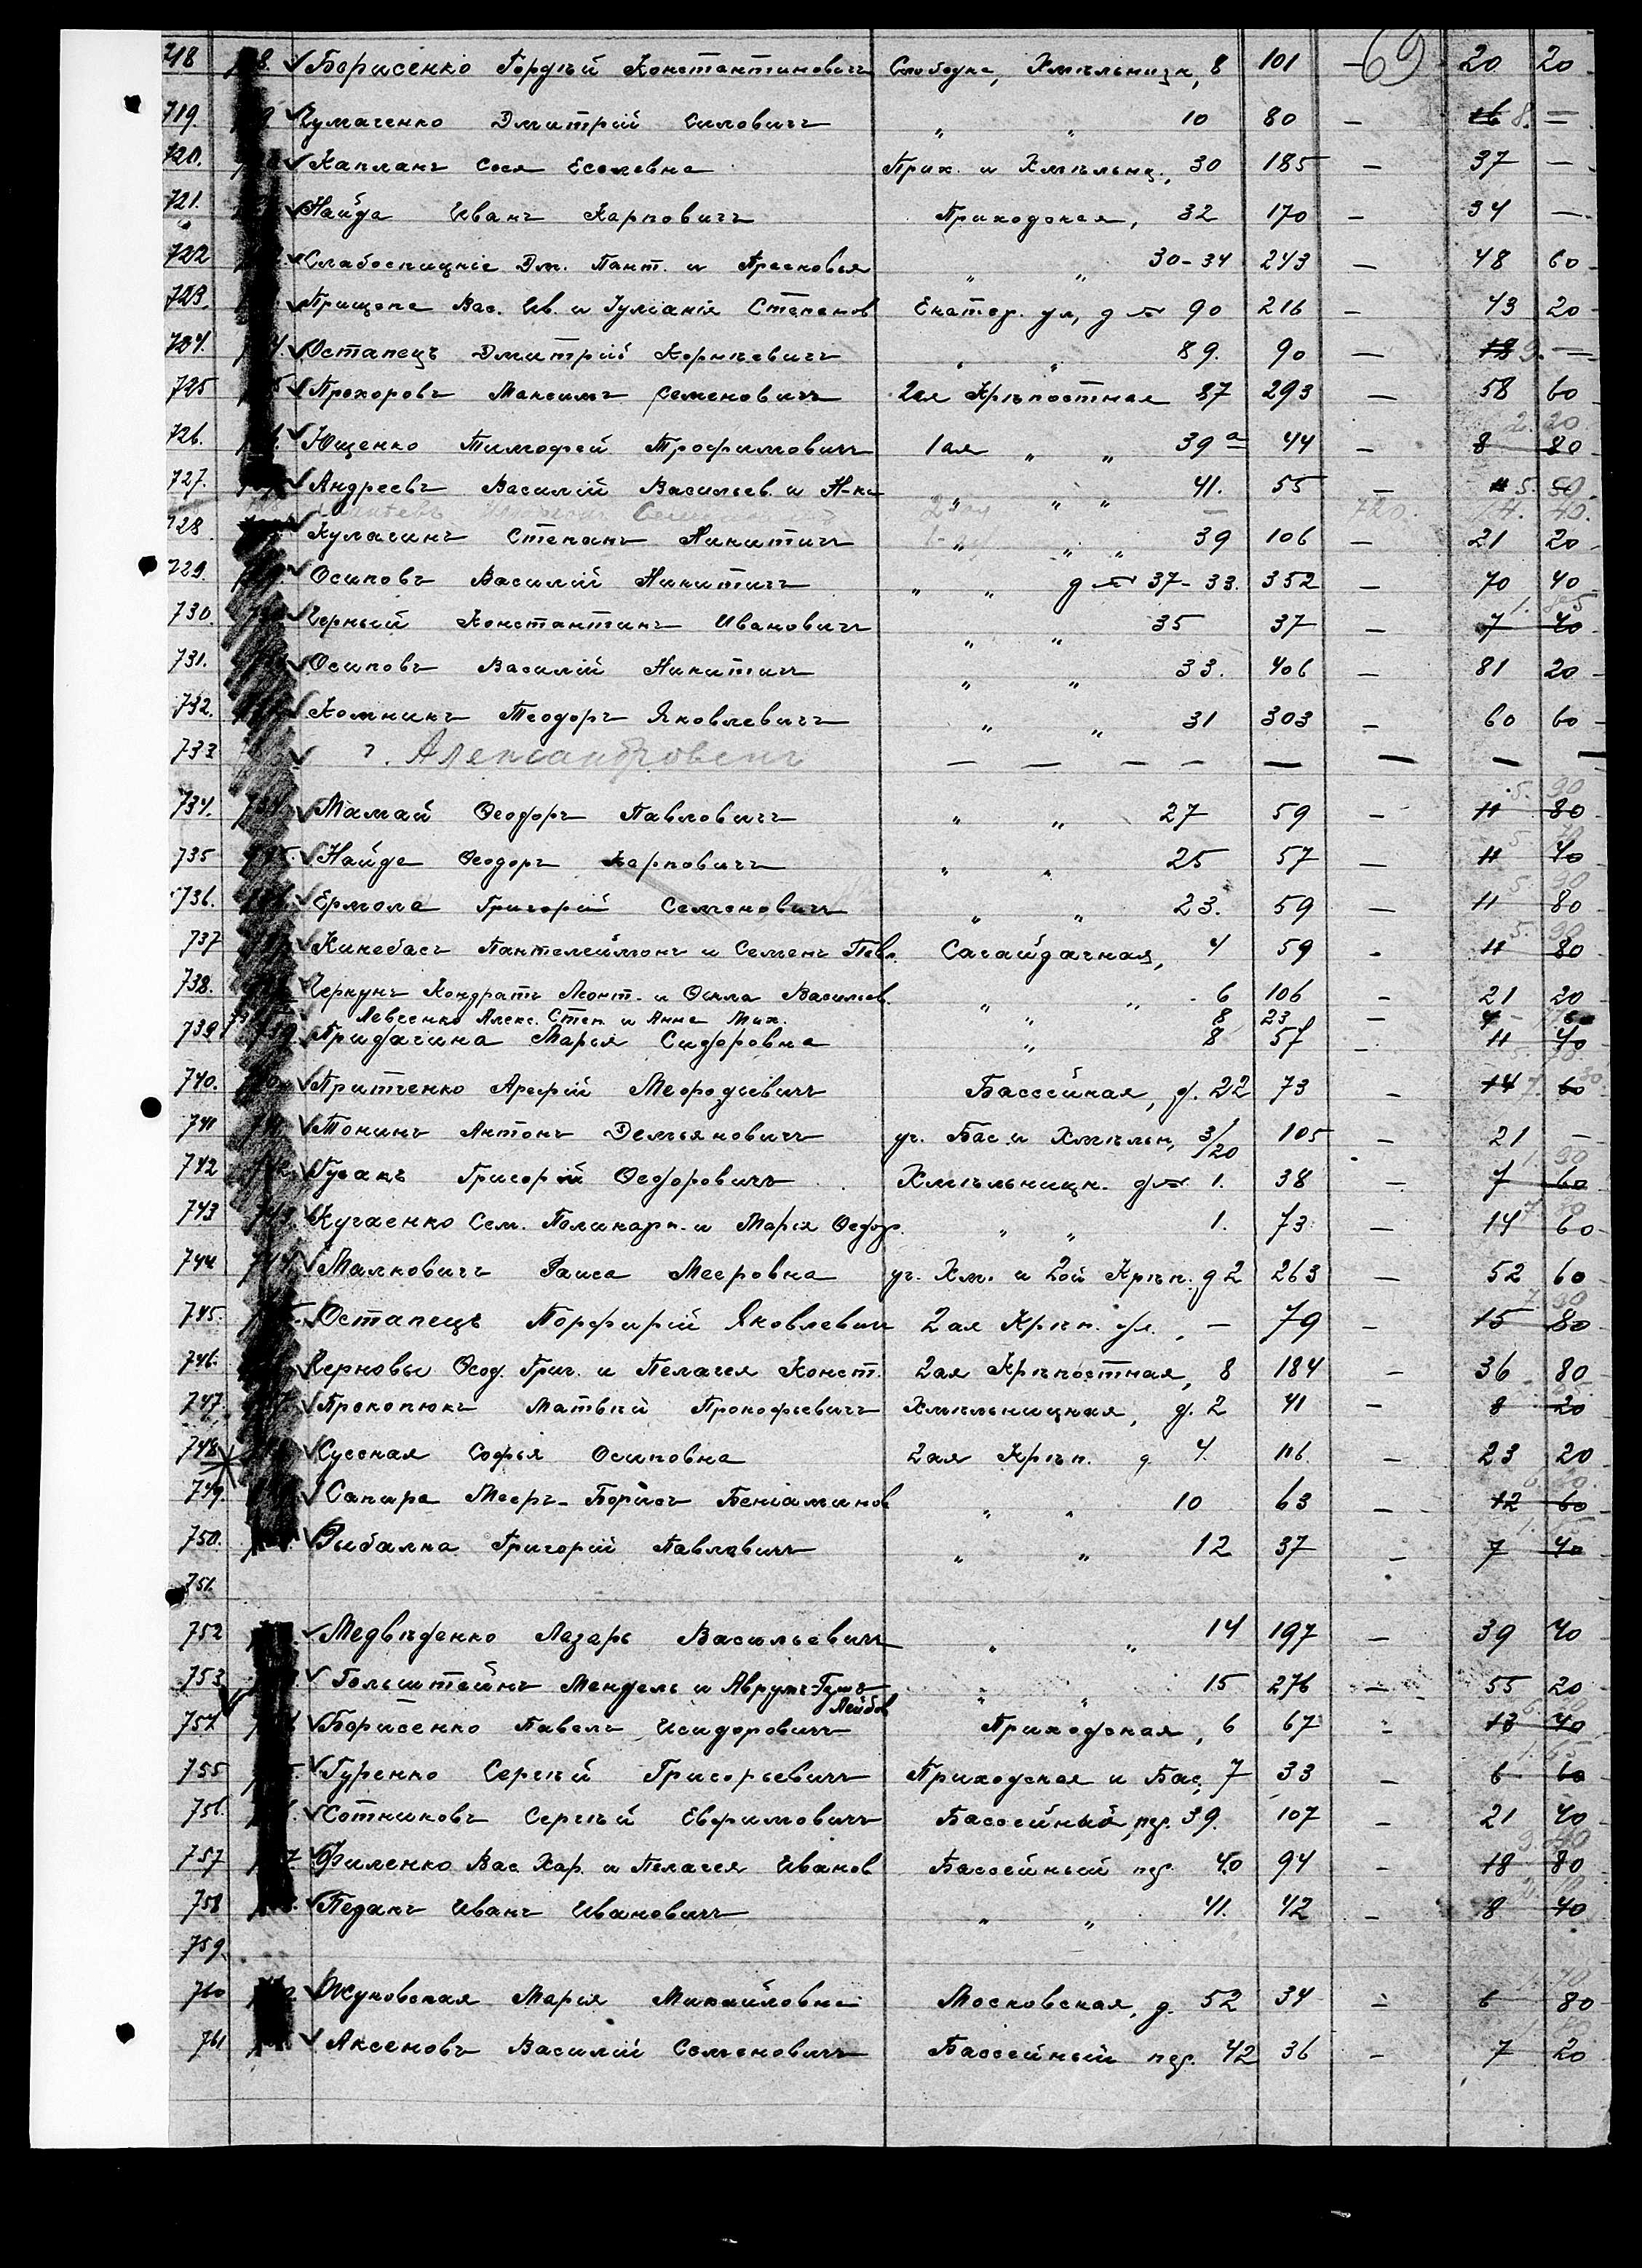 69
718 Борисенко Гордѣй Константиновичъ Слободка, Хмѣльницк, 8 101 — 20 20
719. Чумаченко Дмитрій Силовичъ „ „ 10 80 — 16 8. —
720. Капланъ Сося Еселевна Прих. и Хмѣльниц., 30 185 — 37 —
721. Найда Иванъ Карповичъ Приходская, 32 170 — 34 —
722 Слабоспицкіе Дм. Пант. и Прасковья „ „ 30-34 243 — 48 60
723. Прищепа Вас. Ив. и Іуліанія Степанов Екатер. ул, д № 90 216 — 43 20
724. Остапецъ Дмитрій Корнѣевичъ „ „ 89. 90 — 18 9. —
725 Прохоровъ Максимъ Семеновичъ 2ая Крѣпостная 87 293 — 58 60
726. Ющенко Тимофей Трофимовичъ 1ая „ „ 39 а 44 — 8 80 2. 20.
727. Андреевъ Василій Васильев. и Н-ки „ „ „ 41. 55 — 11 5. 50
728 Кулагинъ Степанъ Никитичъ „ „ „ 39 106 — 21 20
729. Осиповъ Василій Никитичъ „ „ д № 37-33. 352 — 70 40
730. Черный Константинъ Ивановичъ „ „ 35 37 — 7 40 1. 85
731. Осиповъ Василій Никитичъ „ „ 33. 406 — 81 20
732. Комнинъ Теодоръ Яковлевичъ „ „ 31 303 — 60 60
733 г. Александровскъ — — — — — — — —
734. Мамай Ѳеодоръ Павловичъ „ „ 27 59 — 11 80 5. 90
735 Найда Ѳеодоръ Карповичъ „ „ 25 57 — 11 40
736. Ермола Григорій Семеновичъ „ „ 23. 59 — 11 80 5. 90
737 Кинебасъ Пантелеймонъ и Семенъ Павл. Сагайдачная, 4 59 - 11 80 5. 90
738. Черкунъ Кондратъ Леонт. и Ѳекла Васильев. „ „ 6 106 — 21 20
Левсенко Алекс. Степ. и Анна Мих. „ 8 23 — 4 60
739 Придачина Марья Сидоровна „ 8 57 — 11 40
740. Притченко Арефій Мефодіевичъ Бассейная, д. 22 73 — 14 7. 60 30.
741 Тонинъ Антонъ Демьяновичъ уг. Бас. и Хмѣльн, 3/20 105 — 21 —
742 Гусакъ Григорій Ѳедоровичъ Хмѣльницк. д № 1. 38 — 7 60 1. 90
743 Кучаенко Сем. Поликарп. и Марія Ѳедор. „ „ 1. 73 — 14 60
744 Малковичъ Раиса Мееровна уг. Хм. и 2ой Крѣп. д 2 263 — 52 60
745. Остапецъ Порфирій Яковлевич 2ая Крѣп. ул., — 79 — 15 80 7. 90
746. Черновы Ѳеод. Григ. и Пелагея Конст. 2ая Крѣпостная, 8 184 — 36 80
747. Прокопюкъ Матвѣй Прокофьевичъ Хмѣльницкая, д. 2 41 — 8 20
748 Сусская Софья Осиповна 2ая Крѣп. д 4. 116. — 23 20
749. Сапиръ Мееръ-Борисъ Беніаминов „ „ 10 63 — 12 60
750. Рыбалка Григорій Павловичъ „ „ 12 37 — 7 40
751.
752 Медвѣденко Лазарь Васильевичъ „ „ 14 197 — 39 40
753 Гольштейнъ Мендель и Аврумъ-Гешъ Лейбов „ „ 15 276 — 55 20
754 Борисенко Павелъ Исидоровичъ Приходская, 6 67 — 13 40
755 Гуренко Сергѣй Григорьевичъ Приходская и Бас, 7 33 — 6 60 1. 65
756. Сотниковъ Сергѣй Ефимовичъ Бассейный, пер. 39. 107 — 21 40
757 Филенко Вас. Хар. и Пелагея Иванов Бассейный пер. 40 94 — 18 80 9. 40
758 Педанъ Иванъ Ивановичъ „ „ 41. 42 — 8 40
759.
760 Жуковская Марія Михайловна Московская, д. 52 34 — 6 80
761 Аксеновъ Василій Семеновичъ Бассейный пер. 42 36 — 7 20